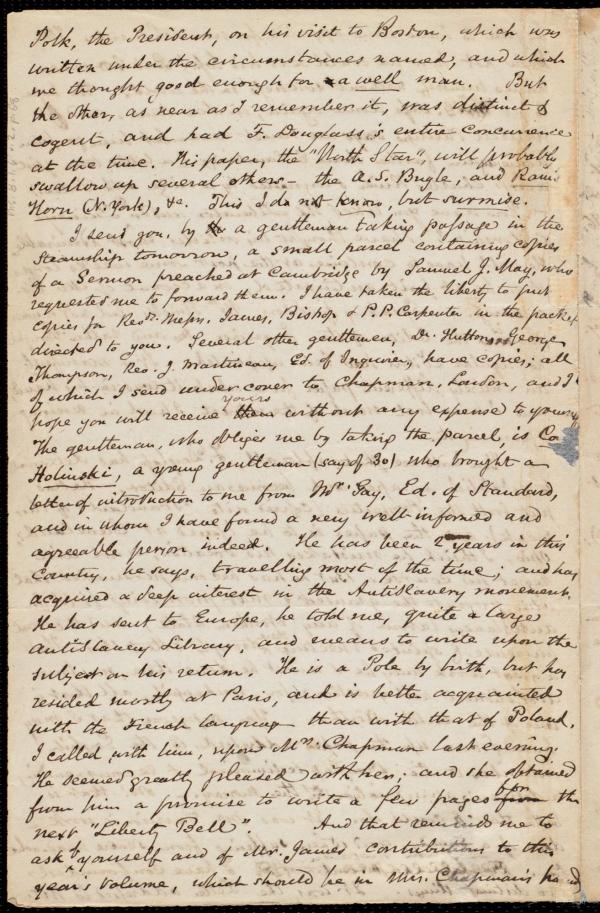 Polk, the President, on his visit to Boston, which was
written under the circumstances named, and which
we thought good enough for a well man. But
the other, as near as I remember it, was distinct &
cogent, and had F. Douglass's entire concurrence
at the time. His paper, the "North Star", will probably
swallow up several others - the A.S. Bugle, and Ram's
Horn (N. York), &c. This I do not know, but surmise.
I send you, by a gentleman taking passage in the
Steamship tomorrow, a small parcel containing copies
of a Sermon preached at Cambridge by Samuel J. May, who
requested me to forward them. I have taken the liberty to put
copies for Revd. Messrs. James, Bishop & P.P. Carpenter in the packet
directed to you. Several other gentlemen, Dr. Hutton, George
Thompson, Rev. J. Martineau, Ed. of Inquirer, have copies; all
of which I send under cover to Chapman, London, and I
hope you will receive yours without any expense to yourself
The gentleman, who obliges me by taking the parcel, is
Holinski, a young gentleman (say of 30) who brought a
letter of introduction to me from Mr. Gay, Ed. of Standard,
and in whom I have found a very well-informed and
agreeable person indeed. He has been 2 years in this
Country, he says, travelling most of the time; and has
acquired a deep interest in the Antislavery movement.
He has sent to Europe, he told me, quite a large
Antislavery Library, and means to write upon the
subject on his return. He is a Pole by birth, but has
resided mostly at Paris, and is better acquainted
with the French language than with that of Poland.
I called, with him, upon Mrs. Chapman last evening.
He seemed greatly pleased with her; and she obtained
from him a promise to write a few pages for the
next "Liberty Bell". And that reminds me to
ask of yourself and of Mr. James contributions to this
year's volume, which should be in Mrs. Chapman's hands